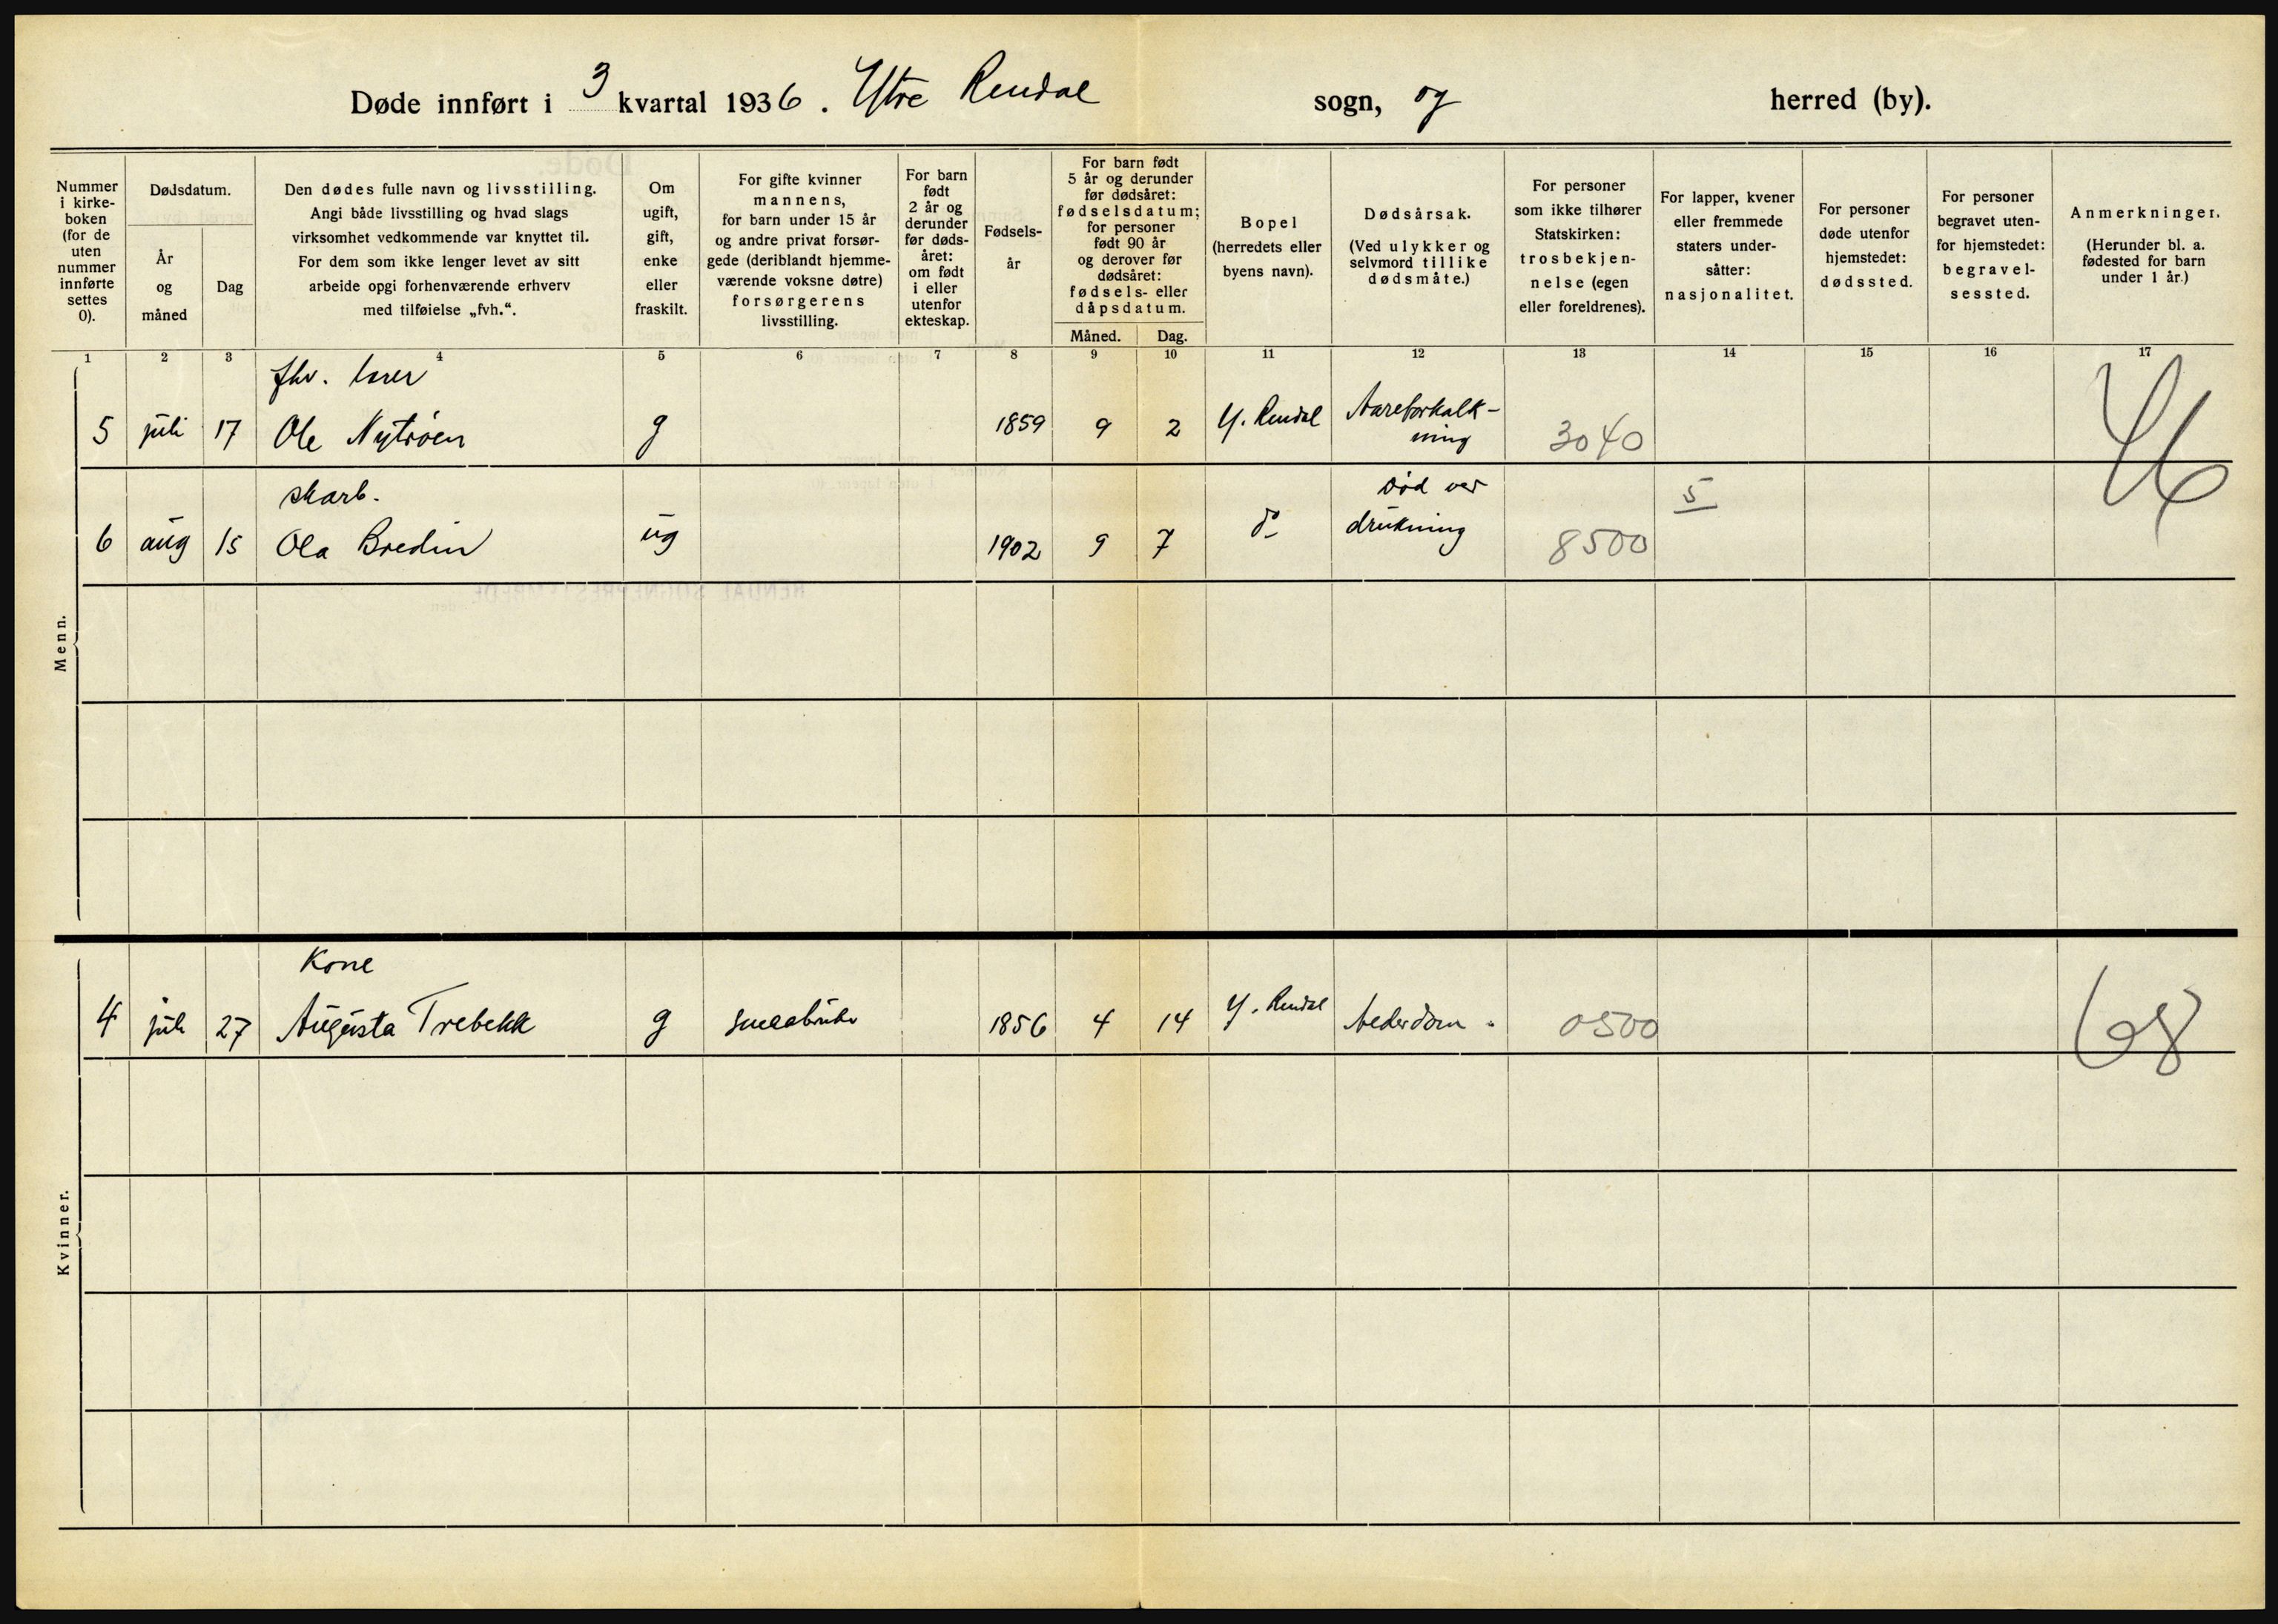 Døde innført i 3 kvartal 1936. Ytre Rendal sogn, og herred (by).
Nummer i kirke- boken (for de uten nummer innførte settes 0).
Dødsdatum.
År og måned
Dag
Den dødes fulle navn og livsstilling.
Angi både livsstilling og hvad slags
virksomhet vedkommende var knyttet til.
For dem som ikke lenger levet av sitt
arbeide opgi forhenværende erhverv
med tilføielse „fvh.“.
Om
ugift,
gift,
enke
eller
fraskilt.
For gifte kvinner
mannens,
for barn under 15 år
og andre privat forsør-
gede (deriblandt hjemme-
værende voksne døtre)
forsørgerens
livsstilling.
For barn
født
2 år og
derunder
før døds-
året:
om født
i eller
utenfor
ekteskap.
Fødsels-
år
For barn født
5 år og derunder
før dødsåret:
fødselsdatum;
for personer
født 90 år
og derover før
dødsåret:
fødsels- eller
dåpsdatum.
Måned. Dag.
Bopel
(herredets eller
byens navn).
Dødsårsak.
(Ved ulykker og
selvmord tillike
dødsmåte.)
For personer
som ikke tilhører
Statskirken:
trosbekjen-
nelse (egen
eller foreldrenes).
For lapper, kvener
eller fremmede
staters under-
såtter:
nasjonalitet.
For personer
døde utenfor
hjemstedet:
dødssted.
For personer
begravet uten-
for hjemstedet:
begravel-
sessted.
Anmerkninger.
(Herunder bl. a.
fødested for barn
under 1 år.)
1 2 3 4 5 6 7 8 9 10 11 12 13 14 15 16 17
Menn.
fhv.
5 juli 17 Ole Nytrøen g 1859 9 2 Y. Rendal Aareforkalk-
ning 3040
skarb. død ved 5
6 aug 15 Ola Bredin ug 1902 9 7 do drukning 8500
Kvinner.
Kone
4 juli 27 Augusta Trebekk g smaabruker 1856 4 14 Y. Rendal Alderdom. 0500 68